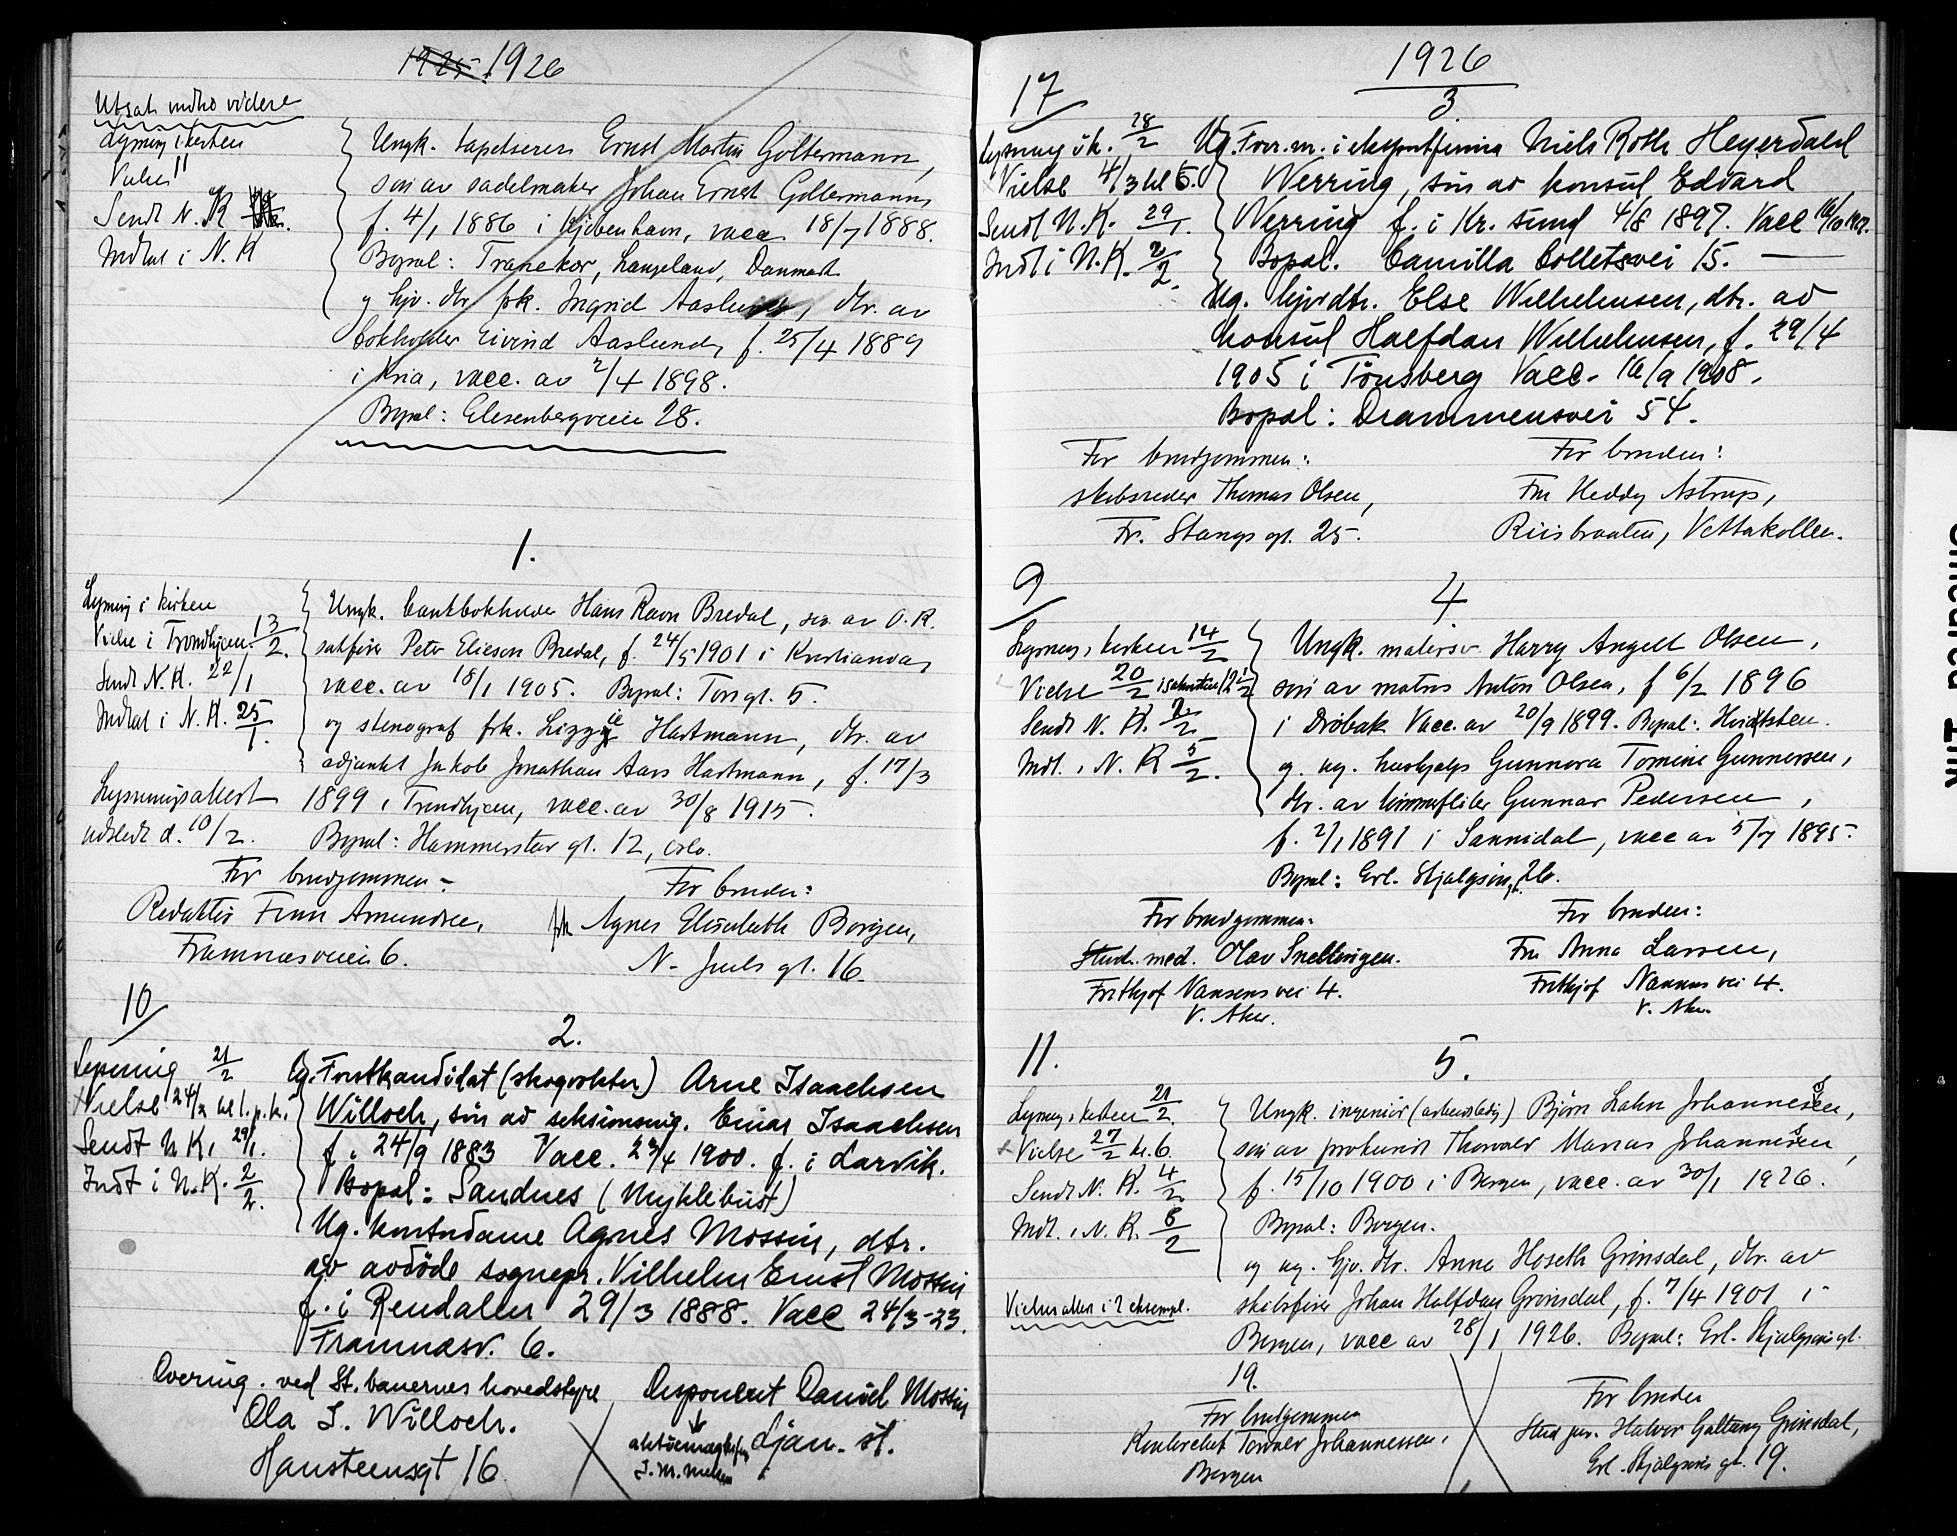 1925. 1926
Utsat indtil videre
Lysning i kirken
Vielse "
Sendt N. K.
Indtat i N. K
Ungk. tapetserer Ernst Martin Goltermann,
søn av sadelmaker Johan Ernst Goltermann,
f. 4/1 1886 i Kjøbenhavn, vacc. 18/7 1888.
Bopæl: Tranekær, Langeland, Danmark
og hjv. dtr. frk. Ingrid Aaslund, dtr. av
bokholder Eivind Aaslund, f. 25/4 1889
i Kria, vacc. av 2/4 1898.
Bopæl: Elisenbergveien 28.
1.
Lysning i kirken
Vielse i Trondhjem 13/2.
Sendt N. K. 22/1
Indtat i N. K. 25/1.
Lysningsattest
utstedt d. 10/2.
Ungk. bankbokholder Hans Ravn Bredal, søn av O. R.
sakfører Peter Elieson Bredal, f. 24/5 1901 i Kristiania,
vacc. av 18/1 1905. Bopæl: Torsgt. 5.
og stenograf frk. Lizzie Hartmann, dtr. av
adjunkt Jakob Jonathan Aars Hartmann, f. 17/3
1899 i Trondhjem, vacc. av 30/8 1915.
Bopæl: Hammerstad gt. 12, Oslo.
For brudgommen:
Redaktør Finn Amundsen,
Framnæsveien 6.
For bruden:
frk Agnes Elisabeth Borgen,
N. Juels gt. 16.
10
2.
Lysning 21/2
Vielse 24/2 kl 1. p.k.
Sendt N K, 29/1.
Indt i N. K. 2/2.
Ug. Forstkandidat (skogvokter) Arne Isaachsen
Willoch, søn av seksionsing. Einar Isaachsen
f. 24/9 1883 Vacc. 23/4 1900. f. i Larvik.
Bopæl: Sandnes (Myklebust)
Ug. kontordame Agnes Mossin, dtr.
av avdøde sognepr. Vilhelm Ernst Mossin
f. i Rendalen 29/3 1888. Vacc 24/3-23.
Framnæsv. 6.
Overing. ved St. banernes hovedstyre
Ola I. Willoch.
Hansteensgt 16
Disponent Daniel Mossin
Ljan. st.
1926
17
3
Lysning i k. 28/2
Vielse 4/3 kl 5.
Sendt N. K. 29/1.
Indt i N. K. 2/2.
Ug. Forr.m. i eksportfirma Niels Roth Heyerdahl
Werring, søn av konsul Edvard
Werring f. i Kr. sund 4/8 1897. Vacc 16/10 1907.
Bopæl. Camilla Colletsvei 15.
Ug. hjv.dtr. Else Wilhelmsen, dtr. av
konsul Halfdan Wilhelmsen, f. 29/4
1905 i Tønsberg Vacc. 16/9 1908.
Bopæl: Drammensvei 54.
For brudgommen:
skibsreder Thomas Olsen,
Fr. Stangs gt. 25.
For bruden:
Fru Heddy Astrup,
Riisbraaten, Vettakollen.
9
4
Lysning i kirken 14/2
Vielse 20/2
Sendt N. K. 2/2
Indt. i N. K 5/2.
Ungk. malersv. Harry Angell Olsen,
søn av matros Anton Olsen, f 6/2 1896
i Drøbak Vacc. av 20/9 1899. Bopæl: Hvitsten.
og ug. hushjælp Gunnora Tomine Gunnersen,
dtr. av tømmerfløter Gunnar Pedersen,
f. 2/1 1891 i Sannidal, vacc av 5/7 1895.
Bopæl: Erl. Skjalgsøns gt. 26.
For brudgommen:
Stud. med. Olav Snellingen.
Fritjof Nansens vei 4.
V. Aker.
For bruden:
Fru Anna Larsen,
Frithjof Nansens vei 4.
V. Aker.
11.
5.
Lysning i kirken 21/2.
Vielse 27/2 kl. 6.
Sendt N. K. 4/2.
Indt. i N. K. 8/2
Vielsesattest i 2 eksempl.
Ungk. ingeniør (arbeidsledig) Bjørn Lahn Johannessen,
søn av prokurist Thorvald Marius Johannessen,
f. 15/10 1900 i Bergen, vacc. av 30/1 1926.
Bopæl: Bergen.
og ug. hjv. dtr. Anna Hoseth Grinsdal, dtr. av
skibsfører Johan Halfdan Grinsdal, f. 7/4 1901 i
Bergen, vacc av 28/1 1926. Bopæl: Erl. Skjalgsøns gt.
19.
For brudgommen
Kontorchef Torvald Johannessen,
Bergen
For bruden
Stud jur. Halvor Galtung Grinsdal,
Erl. Skjalgsøns gt. 19.